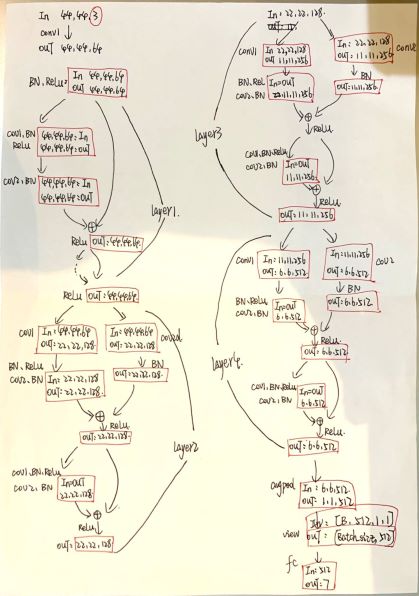 In 44,44,3
conv1
out 44,44,64
BN,Relu:
In 44,44,64
out 44,44,64
cov1,BN
Relu
44,44,64:In
44,44,64:out
cov2,BN
44,44,64:In
44,44,64:out
⊕
Relu
out:44,44,64
layer1.
Relu
out:44,44,64
cov1
In:44,44,64
out:22,22,128
In:44,44,64
out:22,22,128.
BN,Relu
cov2,BN
In:22,22,128
out:22,22,128
BN
out:22,22,128.
⊕
Relu
out:22,22,128.
layer2
cov1,BN,Relu
cov2,BN
In=out
22,22,128.
⊕
Relu
out=22,22,128
In:22,22,128.
conv1
In:22,22,128
out:11,11,256
In:22,22,128
out:11,11,256
BN,Rel
cov2,BN
In=out
11,11,256
BN
out:11,11,256.
⊕
Relu
layer3
cov1,BN,Relu
cov2,BN
In=out
11,11,256
⊕
Relu
out=11,11,256
cov1
In:11,11,256
out:6,6,512
In:11,11,256
out:6,6,512.
cov2
BN,Relu
cov2,BN
In=out
6,6,512
BN
out:6,6,512
⊕
Relu
out:6,6,512
layer4.
cov1,BN,Relu
cov2,BN
In=out
6,6,512
⊕
Relu.
out:6,6,512
avgpool
In:6,6,512.
out:1,1,512
In:=[B,512,1,1]
view
out:=[Batch.size,512]
fc
In:512
out=7